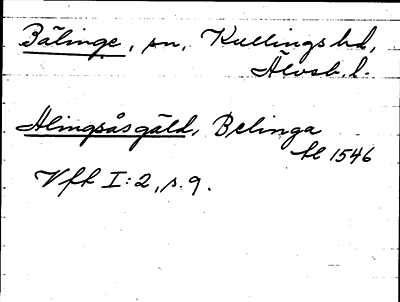 Bälinge, sn, Kullings hd,
Älvsb. l.
Alingsåsgäld, Belinga
hl 1546
Vfk I:2, s. 9.